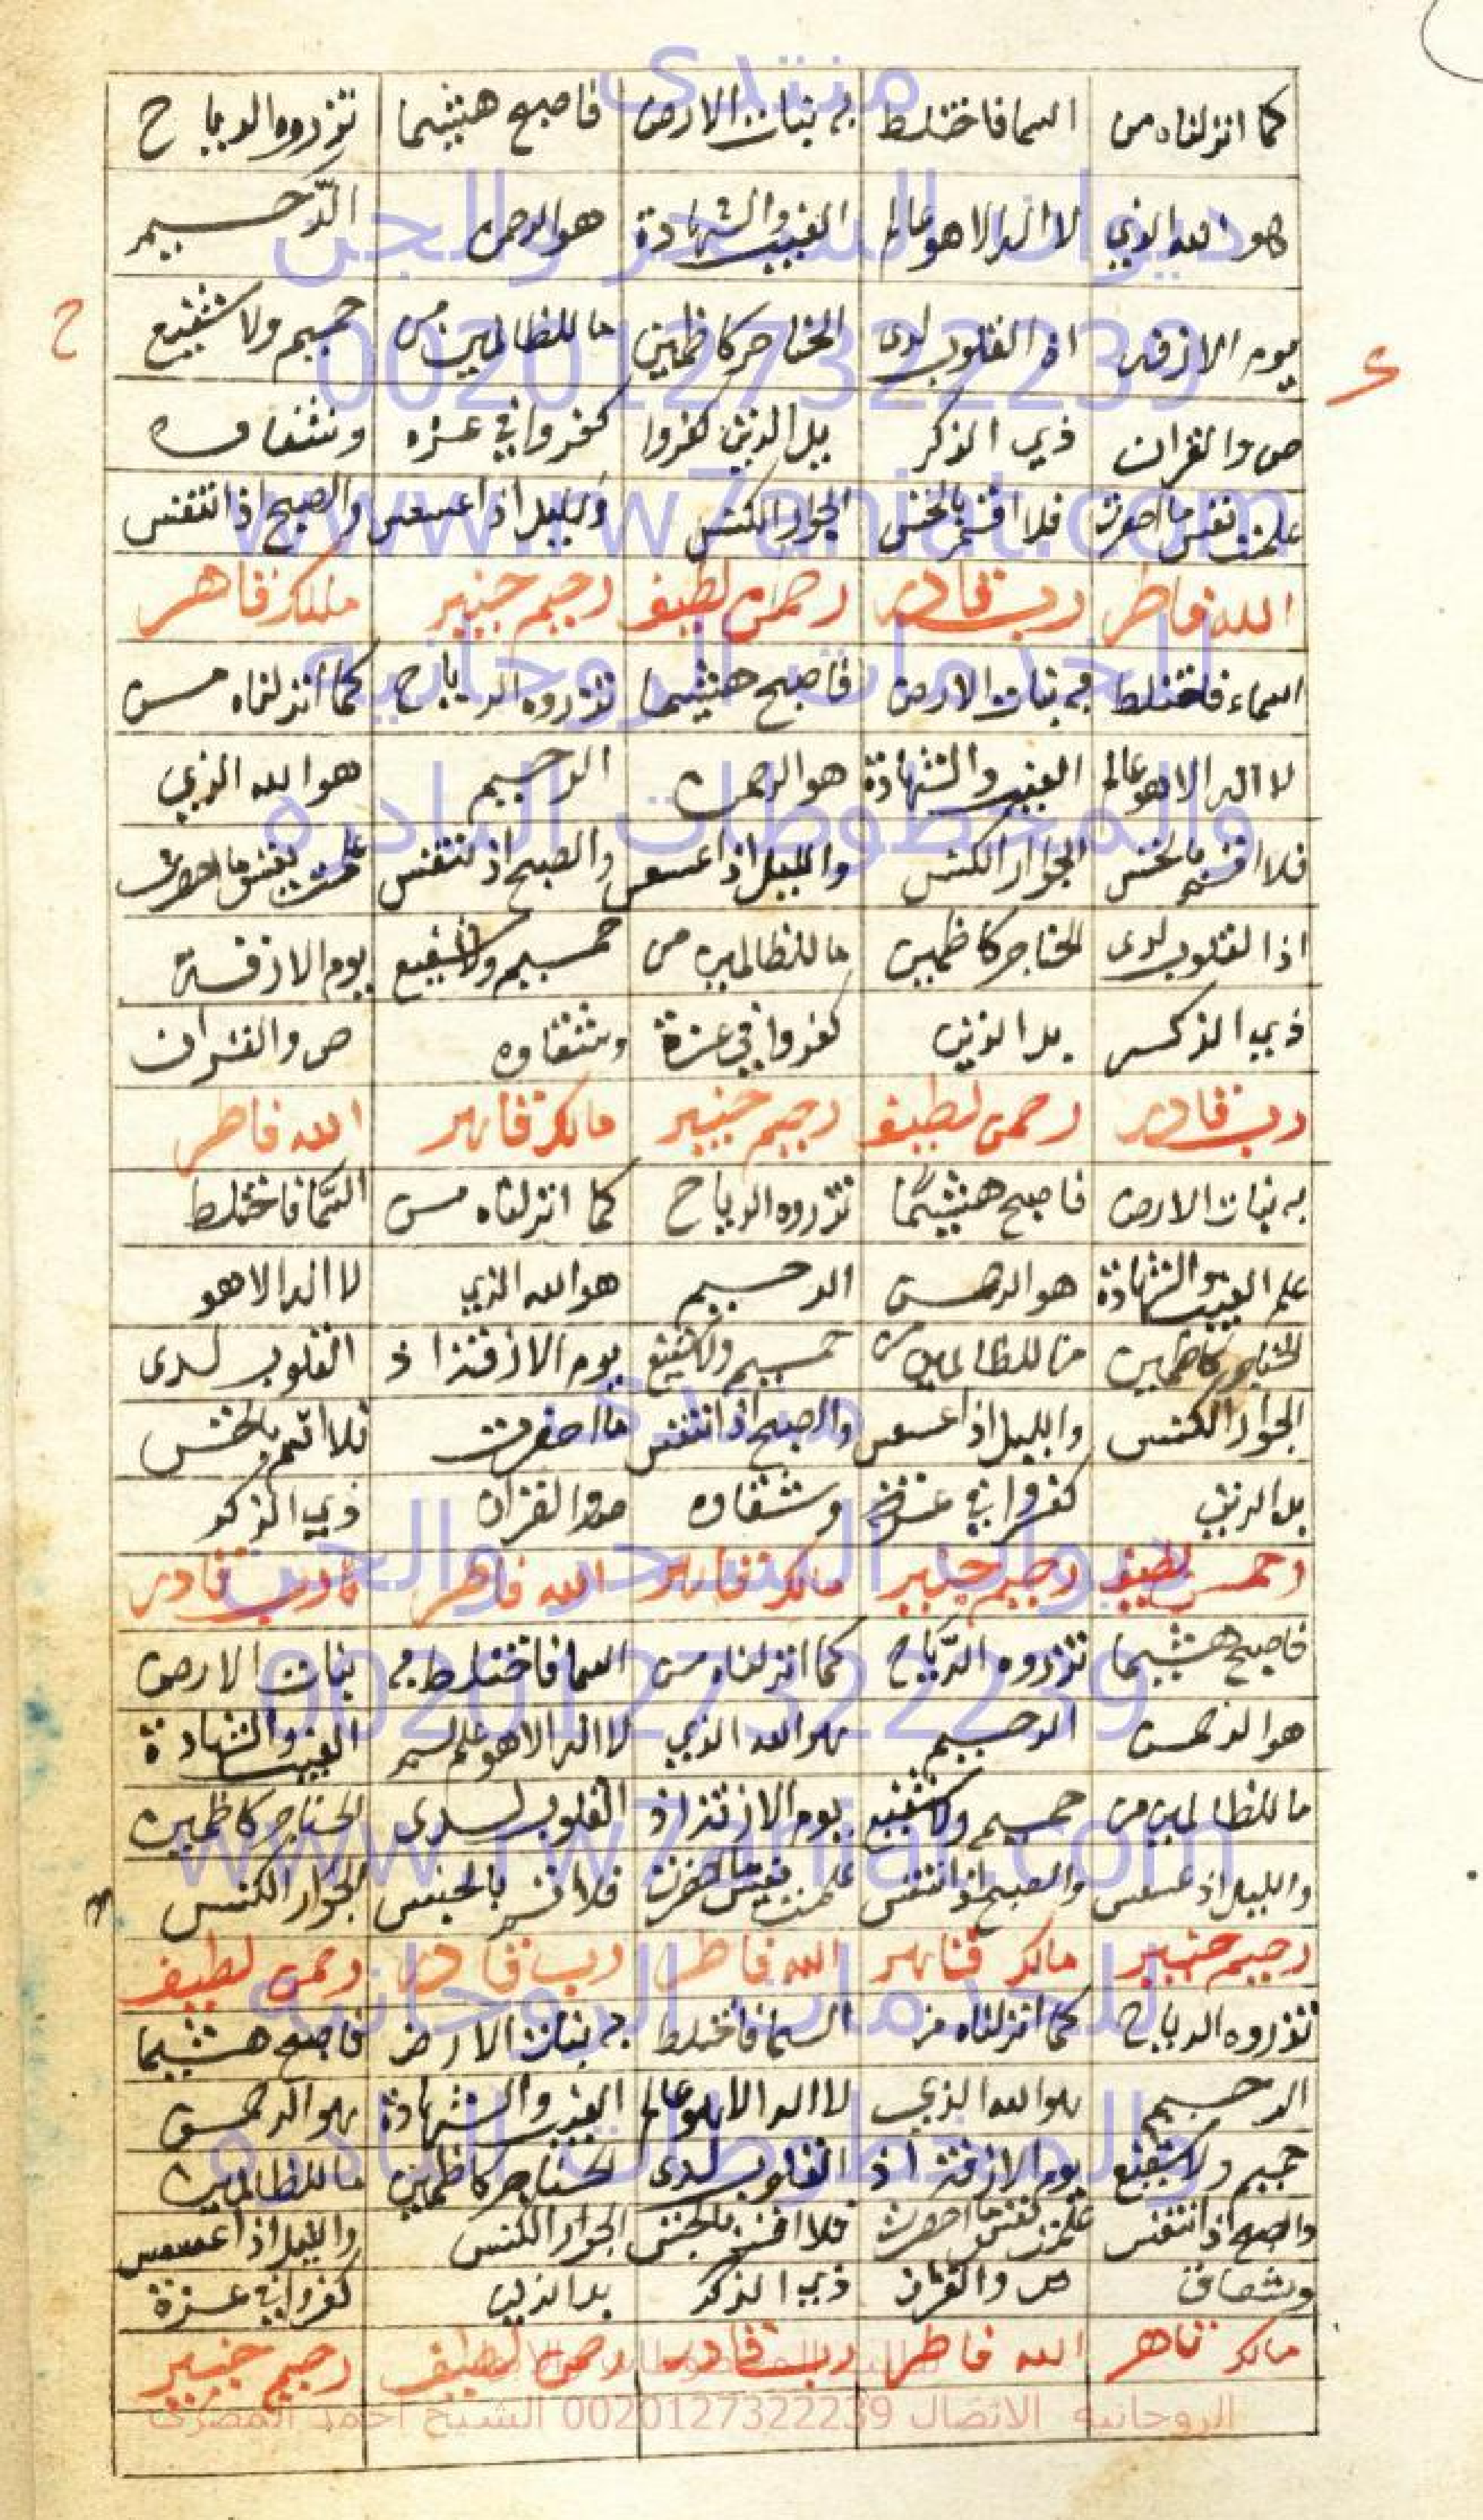 كما انزلناه من السما فاختلط به نبات الارض فاصبح هشيما تذروه الرياح
هو الله الذي لا اله الا هو عالم الغيب والشهادة هو الرحمن الرحيم
يوم الازفه اذ القلوب لدى الحناجر كاظمين ما للظالمين من حميم ولا شفيع
ص والقران ذي الذكر بل الذين كفروا كفروا في عزه وشقاق
علمت نفس ما احضرت فلا اقسم بالخنس الجوار الكنس والليل اذا عسعس والصبح اذا تنفس
الله فاطر رب قادر رحمن لطيف رحيم خبير ملك قاهر
السماء فاختلط به نبات الارض فاصبح هشيما تذروه الرياح كما انزلناه من
لا اله الا هو عالم الغيب والشهادة هو الرحمن الرحيم هو الله الذي
فلا اقسم بالخنس الجوار الكنس والليل اذا عسعس والصبح اذا تنفس علمت نفس ما احضرت
اذ القلوب لدى الحناجر كاظمين ما للظالمين من حميم ولا شفيع يوم الازفة
ذي الذكر بل الذين كفروا في عزة وشقاق ص والقران
رب قادر رحمن لطيف رحيم خبير مالك قاهر الله فاطر
به نبات الارض فاصبح هشيما تذروه الرياح كما انزلناه من السما فاختلط
علم الغيب والشهادة هو الرحمن الرحيم هو الله الذي لا اله الا هو
الحناجر كاظمين ما للظالمين من حميم ولا شفيع يوم الازفة اذ القلوب لدى
الجوار الكنس والليل اذا عسعس والصبح اذا تنفس ما احضرت فلا اقسم بالخنس
بل الذين كفروا في عزة وشقاق ص والقران ذي الذكر
رحمن لطيف رحيم خبير مالك قاهر الله فاطر رب قادر
فاصبح هشيما تذروه الرياح كما انزلناه من السما فاختلط به نبات الارض
هو الرحمن الرحيم هو الله الذي لا اله الا هو علم الغيب والشهادة
ما للظالمين من حميم ولا شفيع يوم الازفة اذ القلوب لدى الحناجر كاظمين
والليل اذ عسعس والصبح اذا تنفس علمت نفس ما احضرت فلا اقسم بالخنس الجوار الكنس
رحيم خبير مالك قاهر الله فاطر رب قادر رحمن لطيف
تذروه الرياح كما انزلناه من السما فاختلط به نبات الارض فاصبح هشيما
الرحيم هو الله الذي لا اله الا هو عالم الغيب والشهادة هو الرحمن
حميم ولا شفيع يوم الازفة اذ القلوب لدى الحناجر كاظمين ما للظالمين
والصبح اذا تنفس علمت نفس ما احضرت فلا اقسم بالخنس الجوار الكنس والليل اذا عسعس
وشقاق ص والقران ذي الذكر بل الذين كفروا في عزة
مالك قاهر الله فاطر رب قادر رحمن لطيف رحيم خبير
منتدى
ديوان السحر والجن
0020127322239
www.rw7aniat.com
للخدمات الروحانيه
والمخطوطات النادره
منتدى
ديوان السحر والجن
0020127322239
www.rw7aniat.com
للخدمات الروحانيه
والمخطوطات النادره
الروحانيه الاتصال 0020127322239 الشيخ احمد المصرى